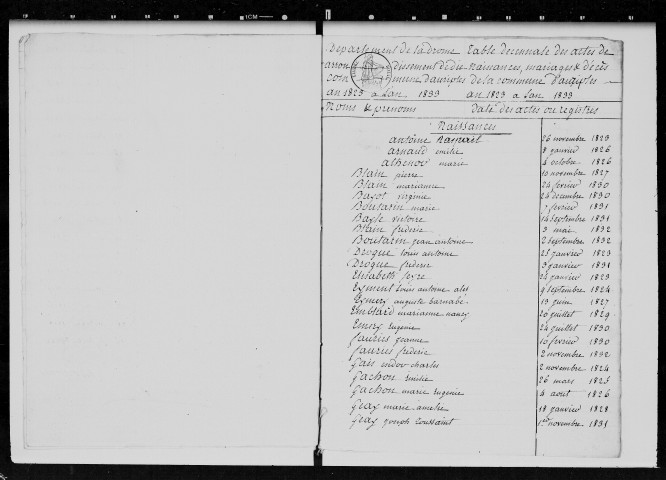 Departement de la drome Table decennale des actes de
arron dissement de die Naissances, mariages & décès
com mune d'aurifles de la commune d'aurifles
an 1823 a l'an 1833 an 1823 a l'an 1833
Noms & prenoms date des actes ou registres
Naissances
antoine 26 novembre 1823
arnaud emilie 8 janvier 1826
athenor marie 4 octobre 1826
Blain pierre 10 novembre 1827
Blain marianne 24 fevrier 1830
Basot virginie 24 decembre 1830
Boutarin marie fevrier 1831
Bayle victoire 14 septembre 1831
Blain frederic 3 mai 1832
Boutarin jean antoine 2 septembre 1832
Droque louis antoine 25 janvier 1823
Droque frederic 3 janvier 1831
Elisabeth feyre 24 janvier 1823
Eyment louis antoine alex 9 septembre 1824
Eymery auguste barnabé 13 juin 1827
Emblard marianne nancy 20 juillet 1829
Emery Eugenie 24 juillet 1830
fauries jeanne 10 fevrier 1830
fauries frederic 2 novembre 1832
Gais charles 2 novembre 1824
Gachon Emilie 26 mars 1825
Gachon marie Eugenie 4 aout 1826
Gray marie amelie 18 janvier 1828
Gray joseph toussaint 1er novembre 1831